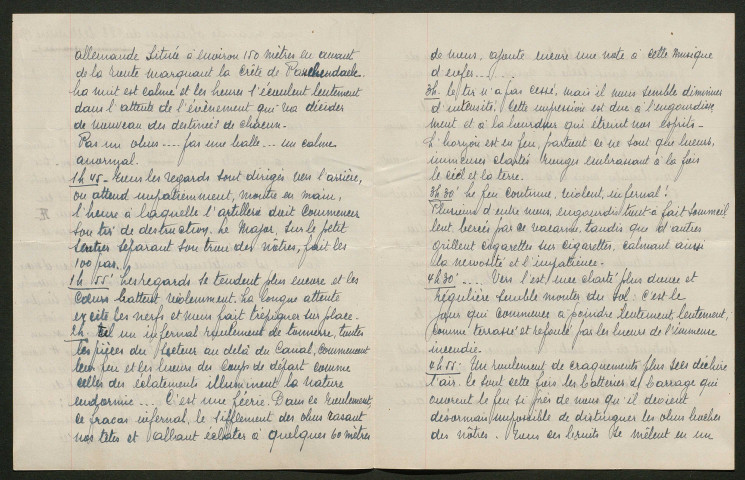 allemande située à environ 150 mètres en avant
de la route marquant la crête de Passchendaele.
La nuit est calme et les heures s'écoulent lentement
dans l'attente de l'évènement qui va décider
de nouveau des destinées de chacun.
Pas un obus .... pas une balle ... un calme
anormal.
1h 45 - Tous les regards sont dirigés vers l'arrière,
on attend impatiemment, montre en main,
l'heure à laquelle l'artillerie doit commencer
son tir de destruction. Le Major, sur le petit
sentier séparant son trou des nôtres, fait les
100 pas.
1h 55' Les regards se tendent plus encore et les
cœurs battent violemment. La longue attente
excite les nerfs et nous fait trépigner sur place.
2h. un infernal roulement de tonnerre, toutes
les pièces du secteur au delà du Canal, commencent
leur feu et les lueurs des coups de départ comme
celles des éclatements illuminent la nature
endormie .... C'est une féérie. Dans ce roulement,
ce fracas infernal, le sifflement des obus rasant
nos têtes et allant éclater à quelques 60 mètres
de nous, ajoute encore une note à cette musique
d'enfer ....
3h. le tir n'a pas cessé, mais il nous semble diminuer
d'intensité. Cette impression est due à l'engourdisse
ment et à la lourdeur qui étreint nos esprits.
L'horizon est en feu, partout ce ne sont que lueurs,
immenses clartés rouges embrassant à la fois
le ciel et la terre.
3h 30' Le feu continue, violent, infernal!
Plusieurs d'entre nous, engourdis tout à fait sommeil
lent, bercés par ce vacarme, tandis que d'autres
grillent cigarettes sur cigarettes, calmant ainsi
la nervosité et l'impatience.
4h 30' .... Vers l'est, une clarté plus douce et
régulière semble monter du sol: c'est le
jour qui commence à poindre lentement, lentement,
comme terrassé et refoulé par les lueurs de l'immense
incendie.
4h 55. Un roulement de craquements plus secs déchire
l'air. Ce sont cette fois les batteries de barrage qui
ouvrent le feu si près de nous qu'il devient
désormais impossible de distinguer les obus boches
des nôtres. Tous ces bruits se mêlent en un